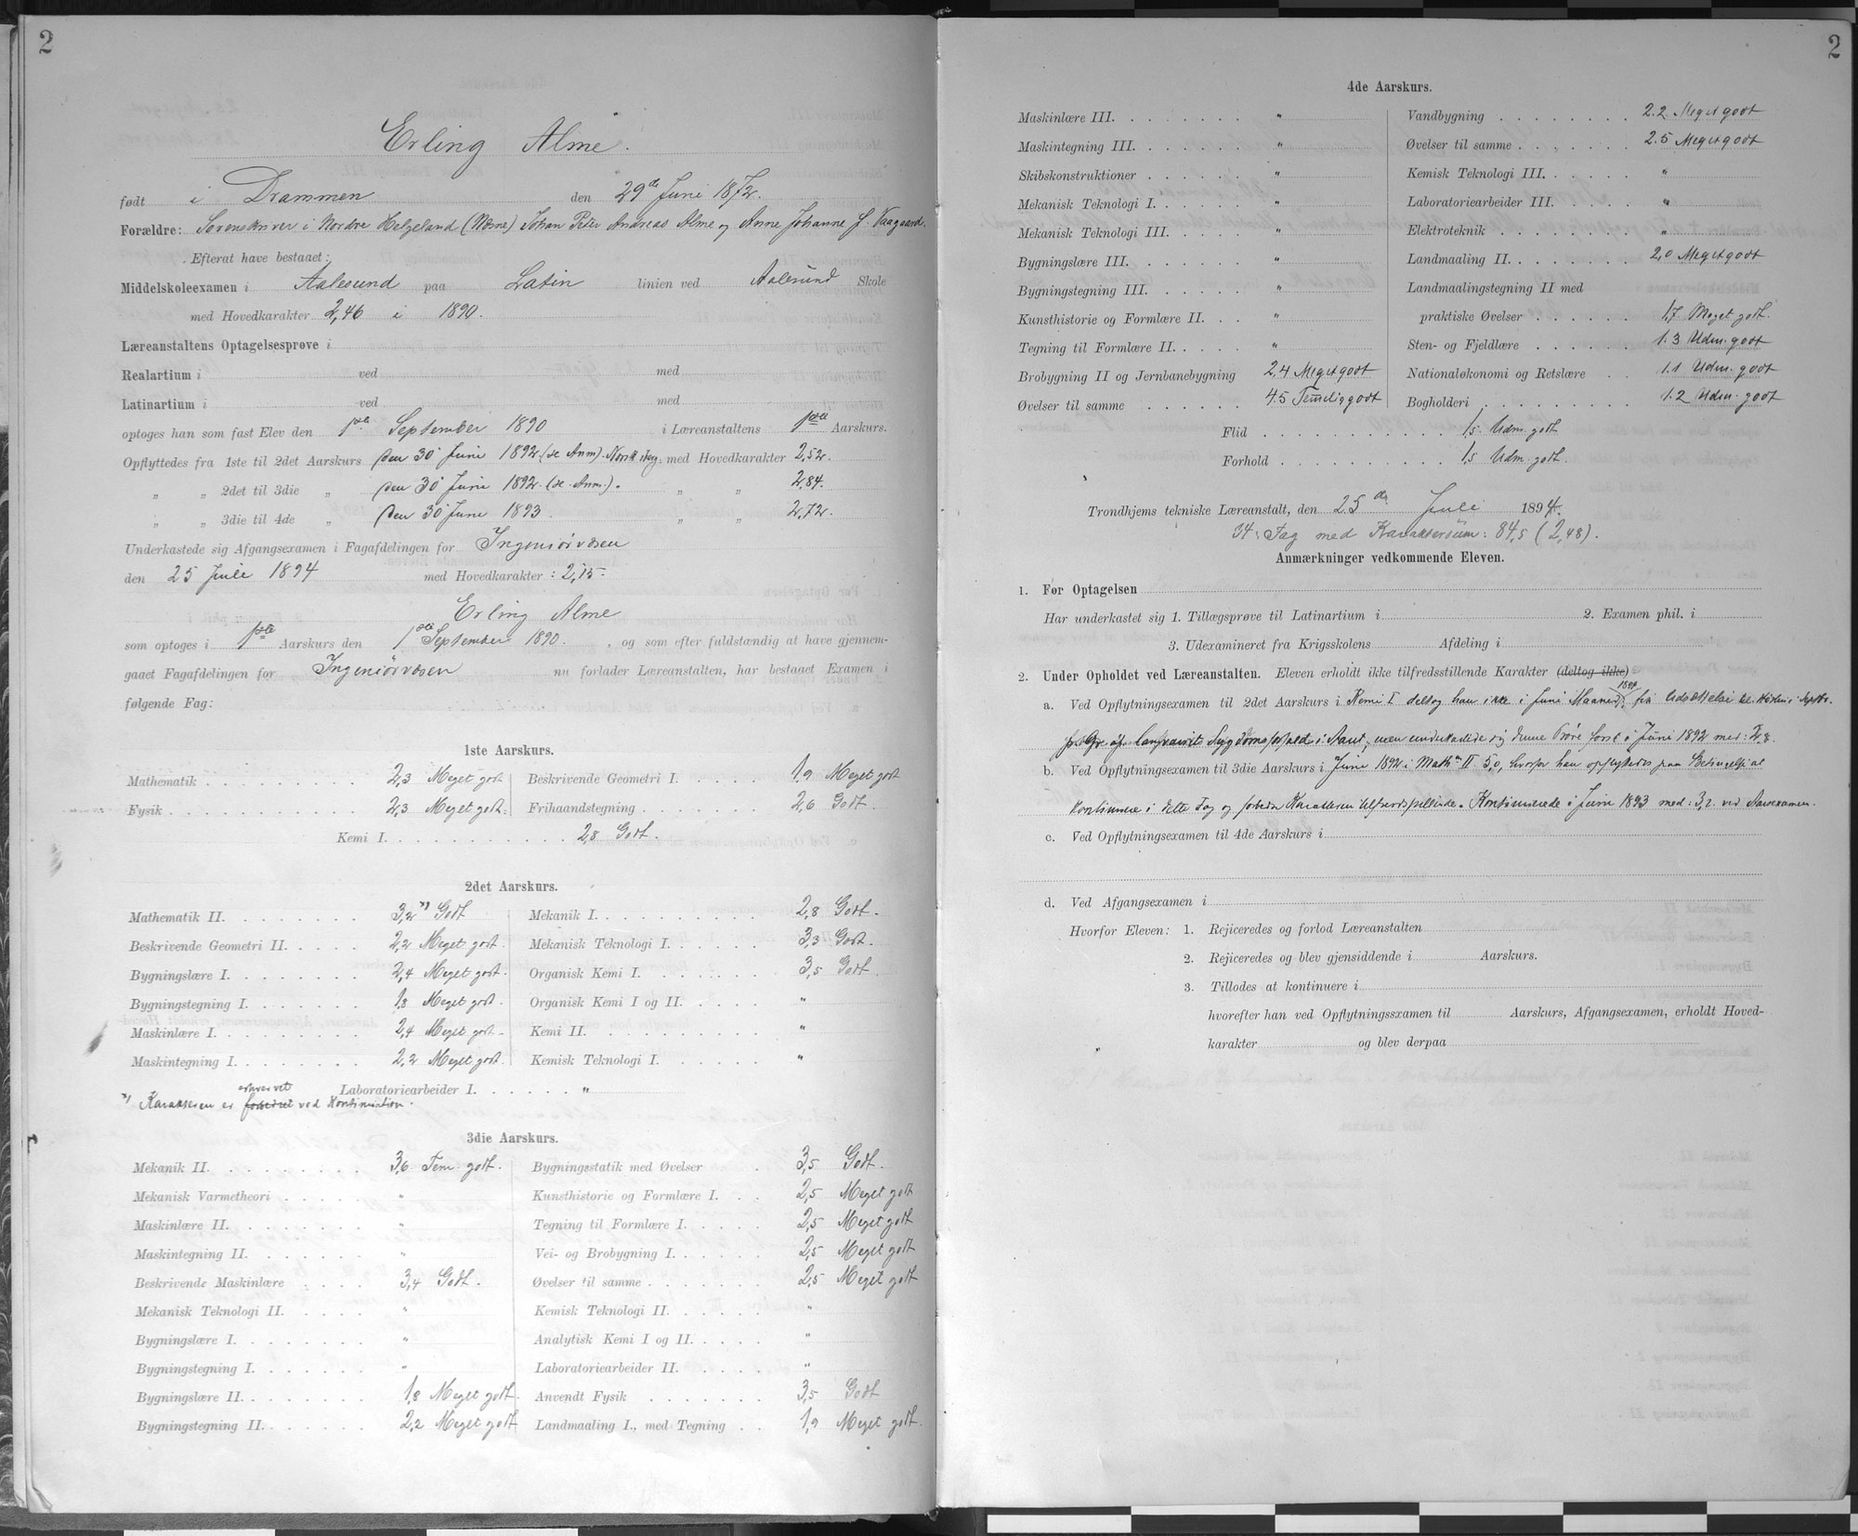 2
Erling Alme.
født i Drammen den 29de Juni 1872.
Forældre: Sorenskriver i Nordre Helgeland (Næsne) Johan Peter Andreas Alme og Anne Johanne f. Vaagaard.
Efterat have bestaaet:
Middelskoleexamen i Aalesund paa Latin linien ved Aalesund Skole
med Hovedkarakter 2,46 i 1890.
Læreanstaltens Optagelsesprøve i
Realartium i ved med
Latinartium i ved med
optoges han som fast Elev den 1ste September 1890 i Læreanstaltens 1ste Aarskurs.
Opflyttedes fra 1ste til 2det Aarskurs den 30 Juni 1892 (se Anm). med Hovedkarakter 2,52.
„ „ 2det til 3die „ den 30 Juni 1892 (se Anm.). „ „ 2,84.
„ „ 3die til 4de „ den 30 Juni 1893 „ „ 2,72.
Underkastede sig Afgangsexamen i Fagafdelingen for Ingeniørvæsen
den 25 Juli 1894 med Hovedkarakter: 2,15.
Erling Alme
som optoges i 1ste Aarskurs den 1ste September 1890. , og som efter fuldstændig at have gjennem-
gaaet Fagafdelingen for Ingeniørvæsen nu forlader Læreanstalten, har bestaaet Examen i
følgende Fag:
1ste Aarskurs.
Mathematik 2,3 Meget godt Beskrivende Geometri I. 1,9 Meget godt
Fysik 2,3 Meget godt. Frihaandstegning 2,6 Godt.
Kemi I. 2,8 Godt.
2det Aarskurs.
Mathematik II. 3,2 *) Godt Mekanik I. 2,8 Godt.
Beskrivende Geometri II. 2,2 Meget godt. Mekanisk Teknologi I. 3,3 Godt.
Bygningslære I. 2,4 Meget godt. Organisk Kemi I. 3,5 Godt
Bygningstegning I. 1,8 Meget godt. Organisk Kemi I og II. „
Maskinlære I. 2,4 Meget godt. Kemi II. „
Maskintegning I. 2,2 Meget godt. Kemisk Teknologi I. „
Laboratoriearbeider I. „
*) Karakteren er forbedret erhvervet ved Kontinuation.
3die Aarskurs.
Mekanik II. 3,6 Tem. godt. Bygningsstatik med Øvelser 3,5 Godt.
Mekanisk Varmetheori „ Kunsthistorie og Formlære I. 2,5 Meget godt
Maskinlære II. „ Tegning til Formlære I. 2,5 Meget godt
Maskintegning II. „ Vei- og Brobygning I. 2,5 Meget godt
Beskrivende Maskinlære 3,4 Godt. Øvelser til samme 2,5 Meget godt
Mekanisk Teknologi II. „ Kemisk Teknologi II. „
Bygningslære I. „ Analytisk Kemi I og II. „
Bygningstegning I. „ Laboratoriearbeider II. „
Bygningslære II. 1,8 Meget godt. Anvendt Fysik 3,5 Godt
Bygningstegning II. 2,2 Meget godt Landmaaling I., med Tegning 1,9 Meget godt.
2
4de Aarskurs.
Maskinlære III. „ Vandbygning 2.2 Meget godt
Maskintegning III. „ Øvelser til samme 2.5 Meget godt
Skibskonstruktioner „ Kemisk Teknologi III. „
Mekanisk Teknologi I. „ Laboratoriearbeider III. „
Mekanisk Teknologi III. „ Elektroteknik „
Bygningslære III. „ Landmaaling II. 2,0 Meget godt
Bygningstegning III. „ Landmaalingstegning II med
Kunsthistorie og Formlære II. „ praktiske Øvelser 1,7 Meget godt.
Tegning til Formlære II. „ Sten- og Fjeldlære 1.3 Udm. godt
Brobygning II og Jernbanebygning 2,4 Meget godt Nationaløkonomi og Retslære 1.1 Udm. godt
Øvelser til samme 4.5 Temelig godt Bogholderi 1.2 Udm. godt
Flid 1,5 Udm. godt
Forhold 1,5 Udm. godt.
Trondhjems tekniske Læreanstalt, den 25de Juli 1894.
34 Fag med Karaktersum: 84,5 (2,48).
Anmærkninger vedkommende Eleven.
1. Før Optagelsen
Har underkastet sig 1. Tillægsprøve til Latinartium i 2. Examen phil. i
3. Udexamineret fra Krigsskolens Afdeling i
2. Under Opholdet ved Læreanstalten. Eleven erholdt ikke tilfredsstillende Karakter (deltog ikke)
a. Ved Opflytningsexamen til 2det Aarskurs i Kemi I deltog han ikke i Juni Maaned 1891, fik Udsættelse til Høsten i Septbr.
Sygdomsforfald men underkastede sig denne Prøve først i Juni 1892 med: 2,8.
b. Ved Opflytningsexamen til 3die Aarskurs i Juni 1892 i Math. II 5,0, hvorfor han opflyttedes paa Betingelse at
kontinuere i dette Fag og forbedre Karakteren tilfredsstillende. Kontinuerede i Juni 1893 med: 3,2. ved Aarsexamen.
c. Ved Opflytningsexamen til 4de Aarskurs i
d. Ved Afgangsexamen i
Hvorfor Eleven: 1. Rejiceredes og forlod Læreanstalten
2. Rejiceredes og blev gjensiddende i Aarskurs.
3. Tillodes at kontinuere i
hvorefter han ved Opflytningssxamen til Aarskurs, Afgangsexamen, erholdt Hoved-
karakter og blev derpaa